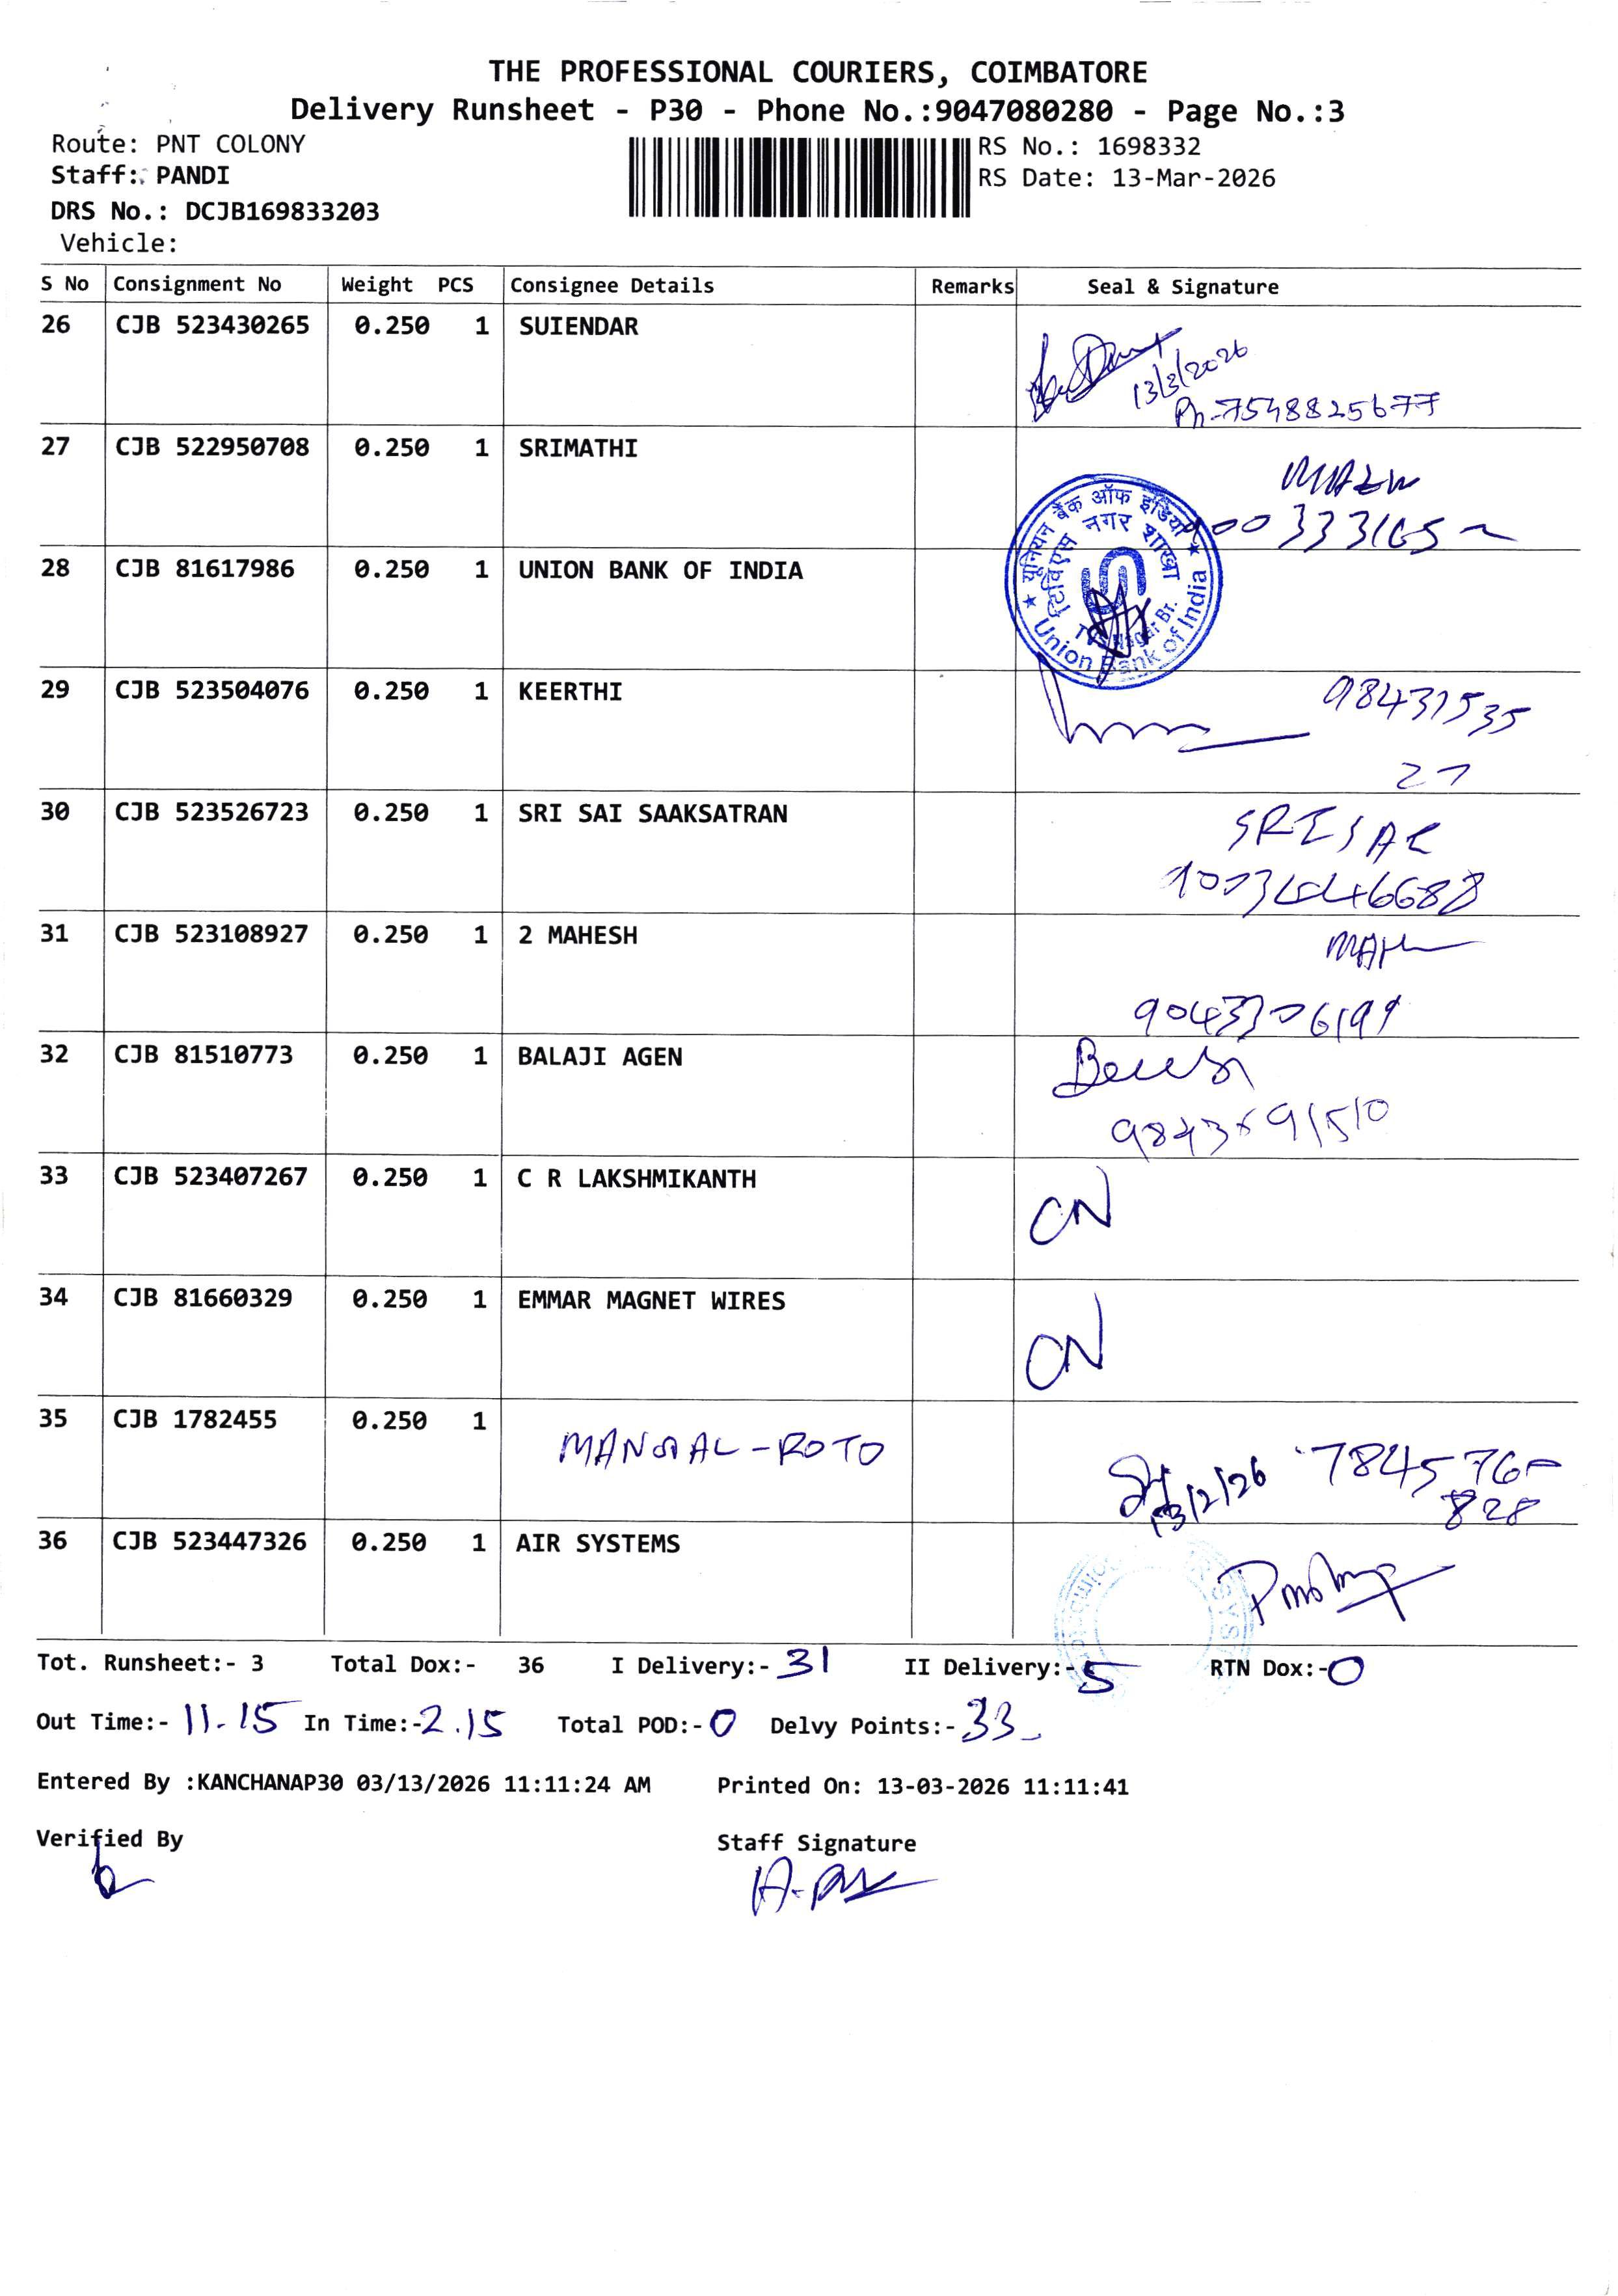 THE PROFESSIONAL COURIERS, COIMBATORE
Delivery Runsheet - P30 - Phone No.:9047080280 - Page No.:3
Route: PNT COLONY
RS No.: 1698332
Staff: PANDI
RS Date: 13-Mar-2026
DRS No.: DCJB169833203
Vehicle:
S No Consignment No Weight PCS Consignee Details Remarks Seal & Signature
26 CJB 523430265 0.250 1 SUIENDAR
13/3/2026
Ph-7548825677
27 CJB 522950708 0.250 1 SRIMATHI
28 CJB 81617986 0.250 1 UNION BANK OF INDIA
यूनियन बैंक ऑफ इंडिया
नगर शाखा
TVS Nagar Br.
Union Bank of India
29 CJB 523504076 0.250 1 KEERTHI
98431535
27
30 CJB 523526723 0.250 1 SRI SAI SAAKSATRAN
SRI SAI
31 CJB 523108927 0.250 1 2 MAHESH
32 CJB 81510773 0.250 1 BALAJI AGEN
33 CJB 523407267 0.250 1 C R LAKSHMIKANTH
CN
34 CJB 81660329 0.250 1 EMMAR MAGNET WIRES
CN
35 CJB 1782455 0.250 1 MANGAL-ROTO
13/2/26 784576-
828
36 CJB 523447326 0.250 1 AIR SYSTEMS
Tot. Runsheet:- 3 Total Dox:- 36 I Delivery:- 31 II Delivery:- 5 RTN Dox:- 0
Out Time:- 11.15 In Time:- 2.15 Total POD:- 0 Delvy Points:- 33
Entered By :KANCHANAP30 03/13/2026 11:11:24 AM Printed On: 13-03-2026 11:11:41
Verified By Staff Signature